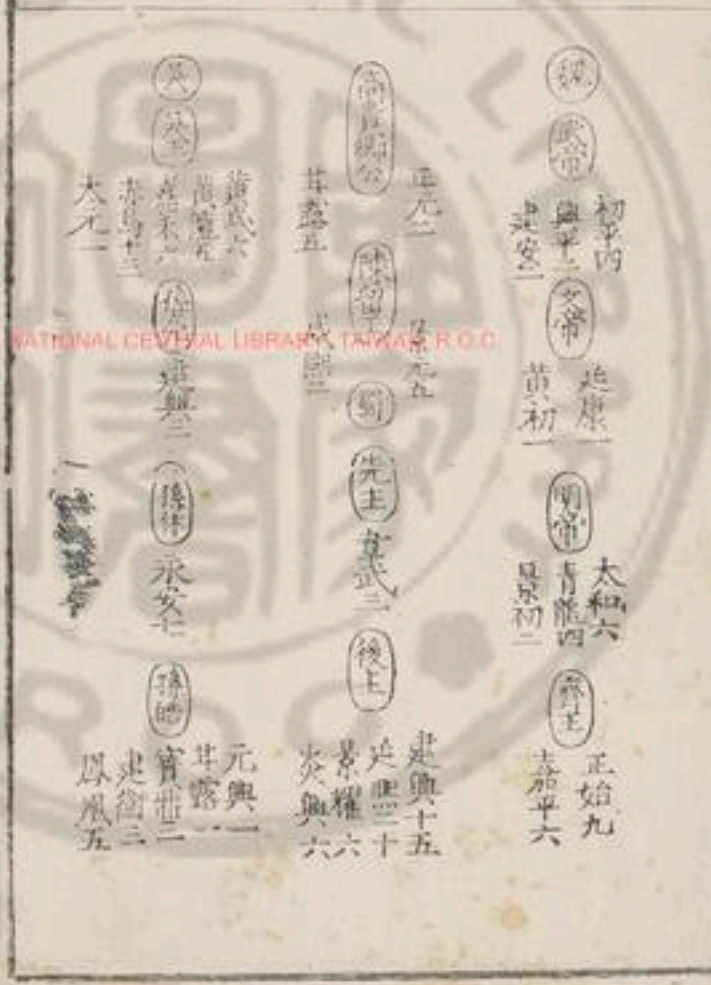 魏
武帝
初平四
興平二
建安二
文帝
延康一
黃初一
明帝
太和六
青龍四
景初二
齊王
正始九
嘉平六
高貴鄉公
正元二
甘露五
陳留王
景元五
咸熙二
蜀
先主
章武三
後主
建興十五
延熙二十
景耀六
炎興六
吳
黃武六
赤烏十三
太元一
建興二
孫休
永安七
孫皓
元興一
甘露一
寶鼎三
建衡三
鳳凰五
NATIONAL CENTRAL LIBRARY, TAIWAN, R.O.C